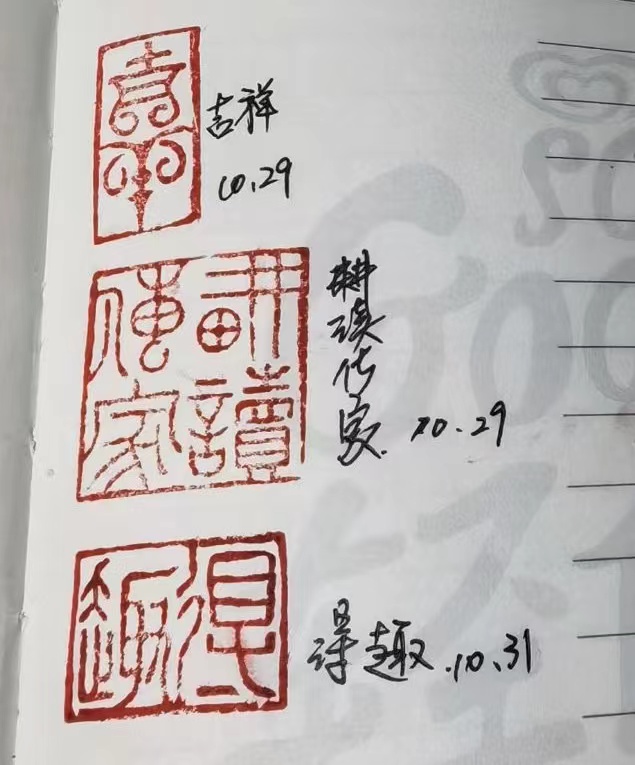 吉羊
吉祥
10.29
耕讀傳家
耕读传家. 10.29
得趣
得趣.10.31